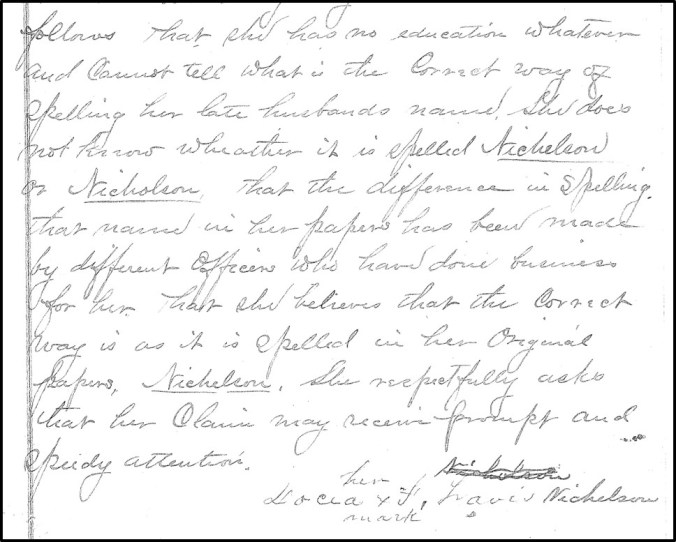 follows that she has no education whatever
and Cannot tell what is the Correct way of
spelling her late husbands name. She does
not know wheather it is spelled Nichelson
or Nicholson, that the difference in Spelling
that name in her papers has been made
by different Officers who have done business
for her. that she believes that the Correct
way is as it is spelled in her Original
papers, Nichelson. She respectfully asks
that her Claim may receive prompt and
speedy attention.
her Nicholson
Docia x T, Travis Nichelson
mark